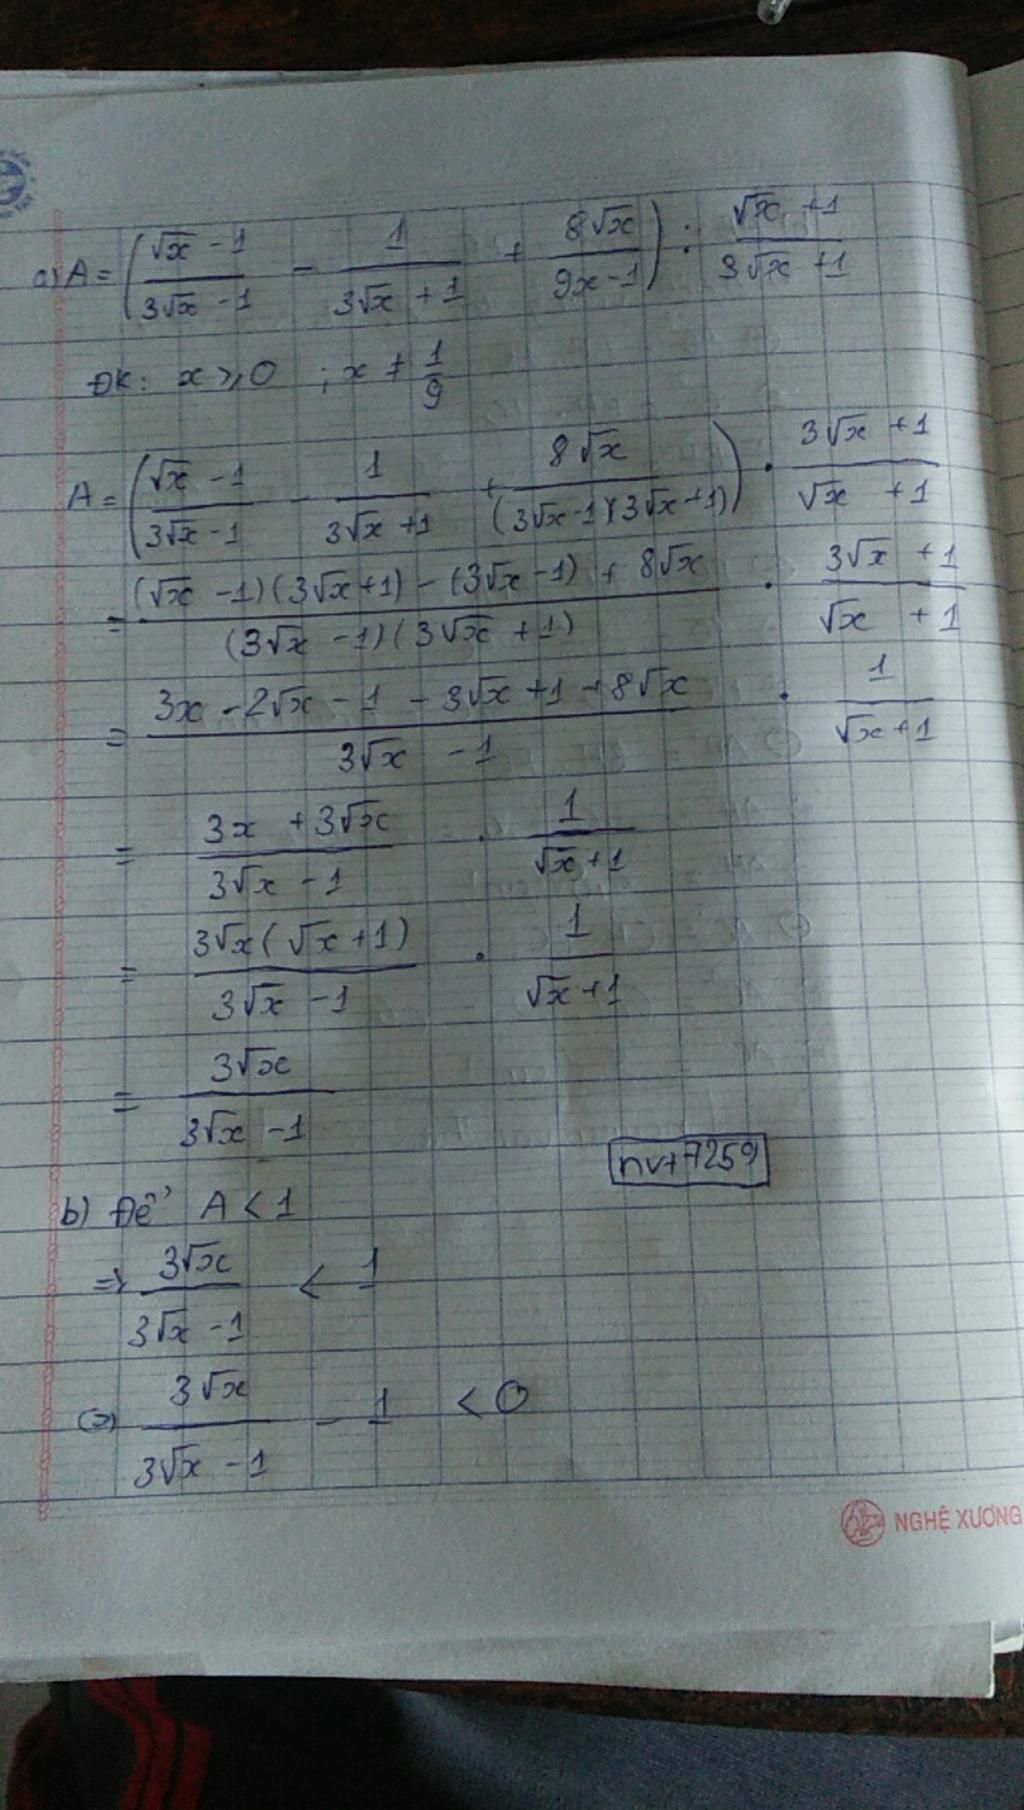 a) A = ( (√x - 1)/(3√x - 1) - 1/(3√x + 1) + 8√x/(9x - 1) ) : (√x + 1)/(3√x + 1)
ĐK: x ≥ 0 ; x ≠ 1/9
A = ( (√x - 1)/(3√x - 1) - 1/(3√x + 1) + 8√x/((3√x - 1)(3√x + 1)) ) . (3√x + 1)/(√x + 1)
= ((√x - 1)(3√x + 1) - (3√x - 1) + 8√x)/((3√x - 1)(3√x + 1)) . (3√x + 1)/(√x + 1)
= (3x - 2√x - 1 - 3√x + 1 + 8√x)/(3√x - 1) . 1/(√x + 1)
= (3x + 3√x)/(3√x - 1) . 1/(√x + 1)
= 3√x(√x + 1)/(3√x - 1) . 1/(√x + 1)
= 3√x/(3√x - 1)
nvt7259
b) Để A < 1
=> 3√x/(3√x - 1) < 1
<=> 3√x/(3√x - 1) - 1 < 0
NGHỆ XƯƠNG